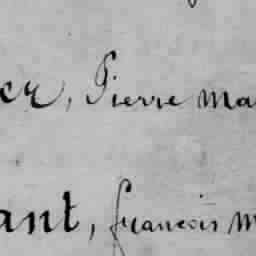 er, Pierre Ma
ant, francois M